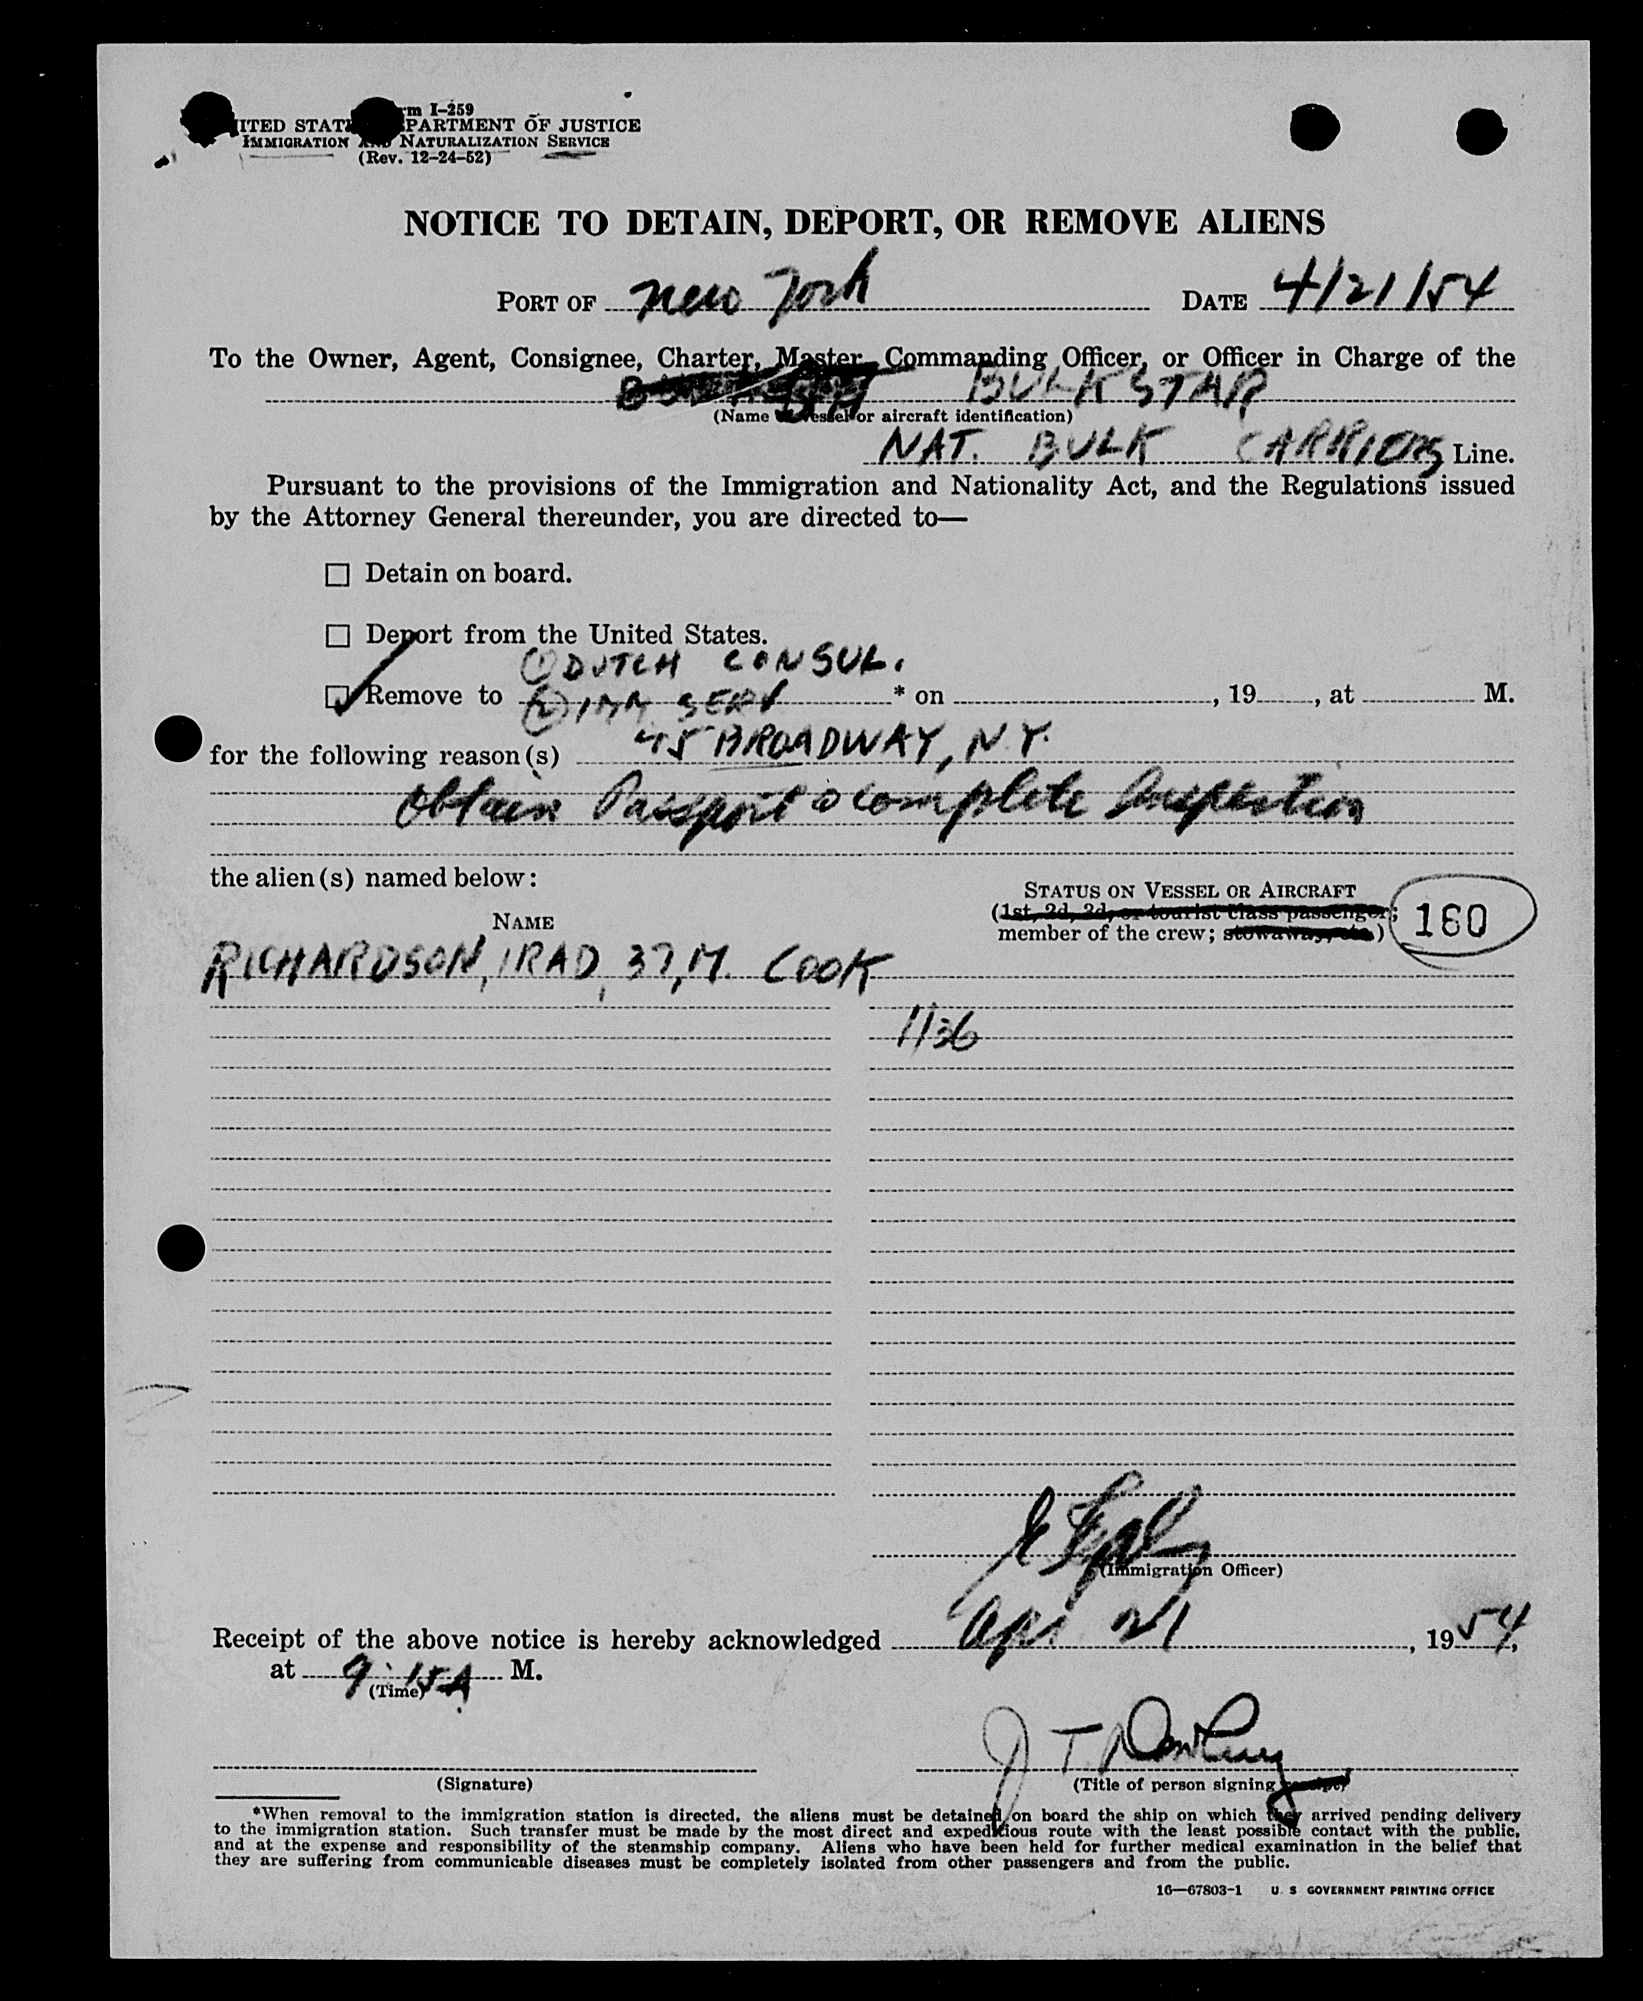 Form I-259
UNITED STATES DEPARTMENT OF JUSTICE
IMMIGRATION AND NATURALIZATION SERVICE
(Rev. 12-24-52)
NOTICE TO DETAIN, DEPORT, OR REMOVE ALIENS
PORT OF New York DATE 4/21/54
To the Owner, Agent, Consignee, Charter, Master, Commanding Officer, or Officer in Charge of the
BULKSTAR
(Name of vessel or aircraft identification)
NAT. BULK CARRIERS Line.
Pursuant to the provisions of the Immigration and Nationality Act, and the Regulations issued
by the Attorney General thereunder, you are directed to—
Detain on board.
Deport from the United States.
(1) DUTCH CONSUL.
Remove to (2) IMM. SERV * on , 19 , at M.
for the following reason(s) 45 BROADWAY, N.Y.
Obtain Passport & complete Inspection
the alien(s) named below:
STATUS ON VESSEL OR AIRCRAFT
NAME (1st, 2d, 3d, or tourist class passenger; 160
member of the crew; stowaway, etc.)
RICHARDSON, IRAD, 37, M. COOK
1136
(Immigration Officer)
Receipt of the above notice is hereby acknowledged Apr 21, 1954,
at 9:15 A M.
(Time)
J T
(Signature) (Title of person signing receipt)
*When removal to the immigration station is directed, the aliens must be detained on board the ship on which they arrived pending delivery
to the immigration station. Such transfer must be made by the most direct and expeditious route with the least possible contact with the public,
and at the expense and responsibility of the steamship company. Aliens who have been held for further medical examination in the belief that
they are suffering from communicable diseases must be completely isolated from other passengers and from the public.
16—67803-1 U. S. GOVERNMENT PRINTING OFFICE